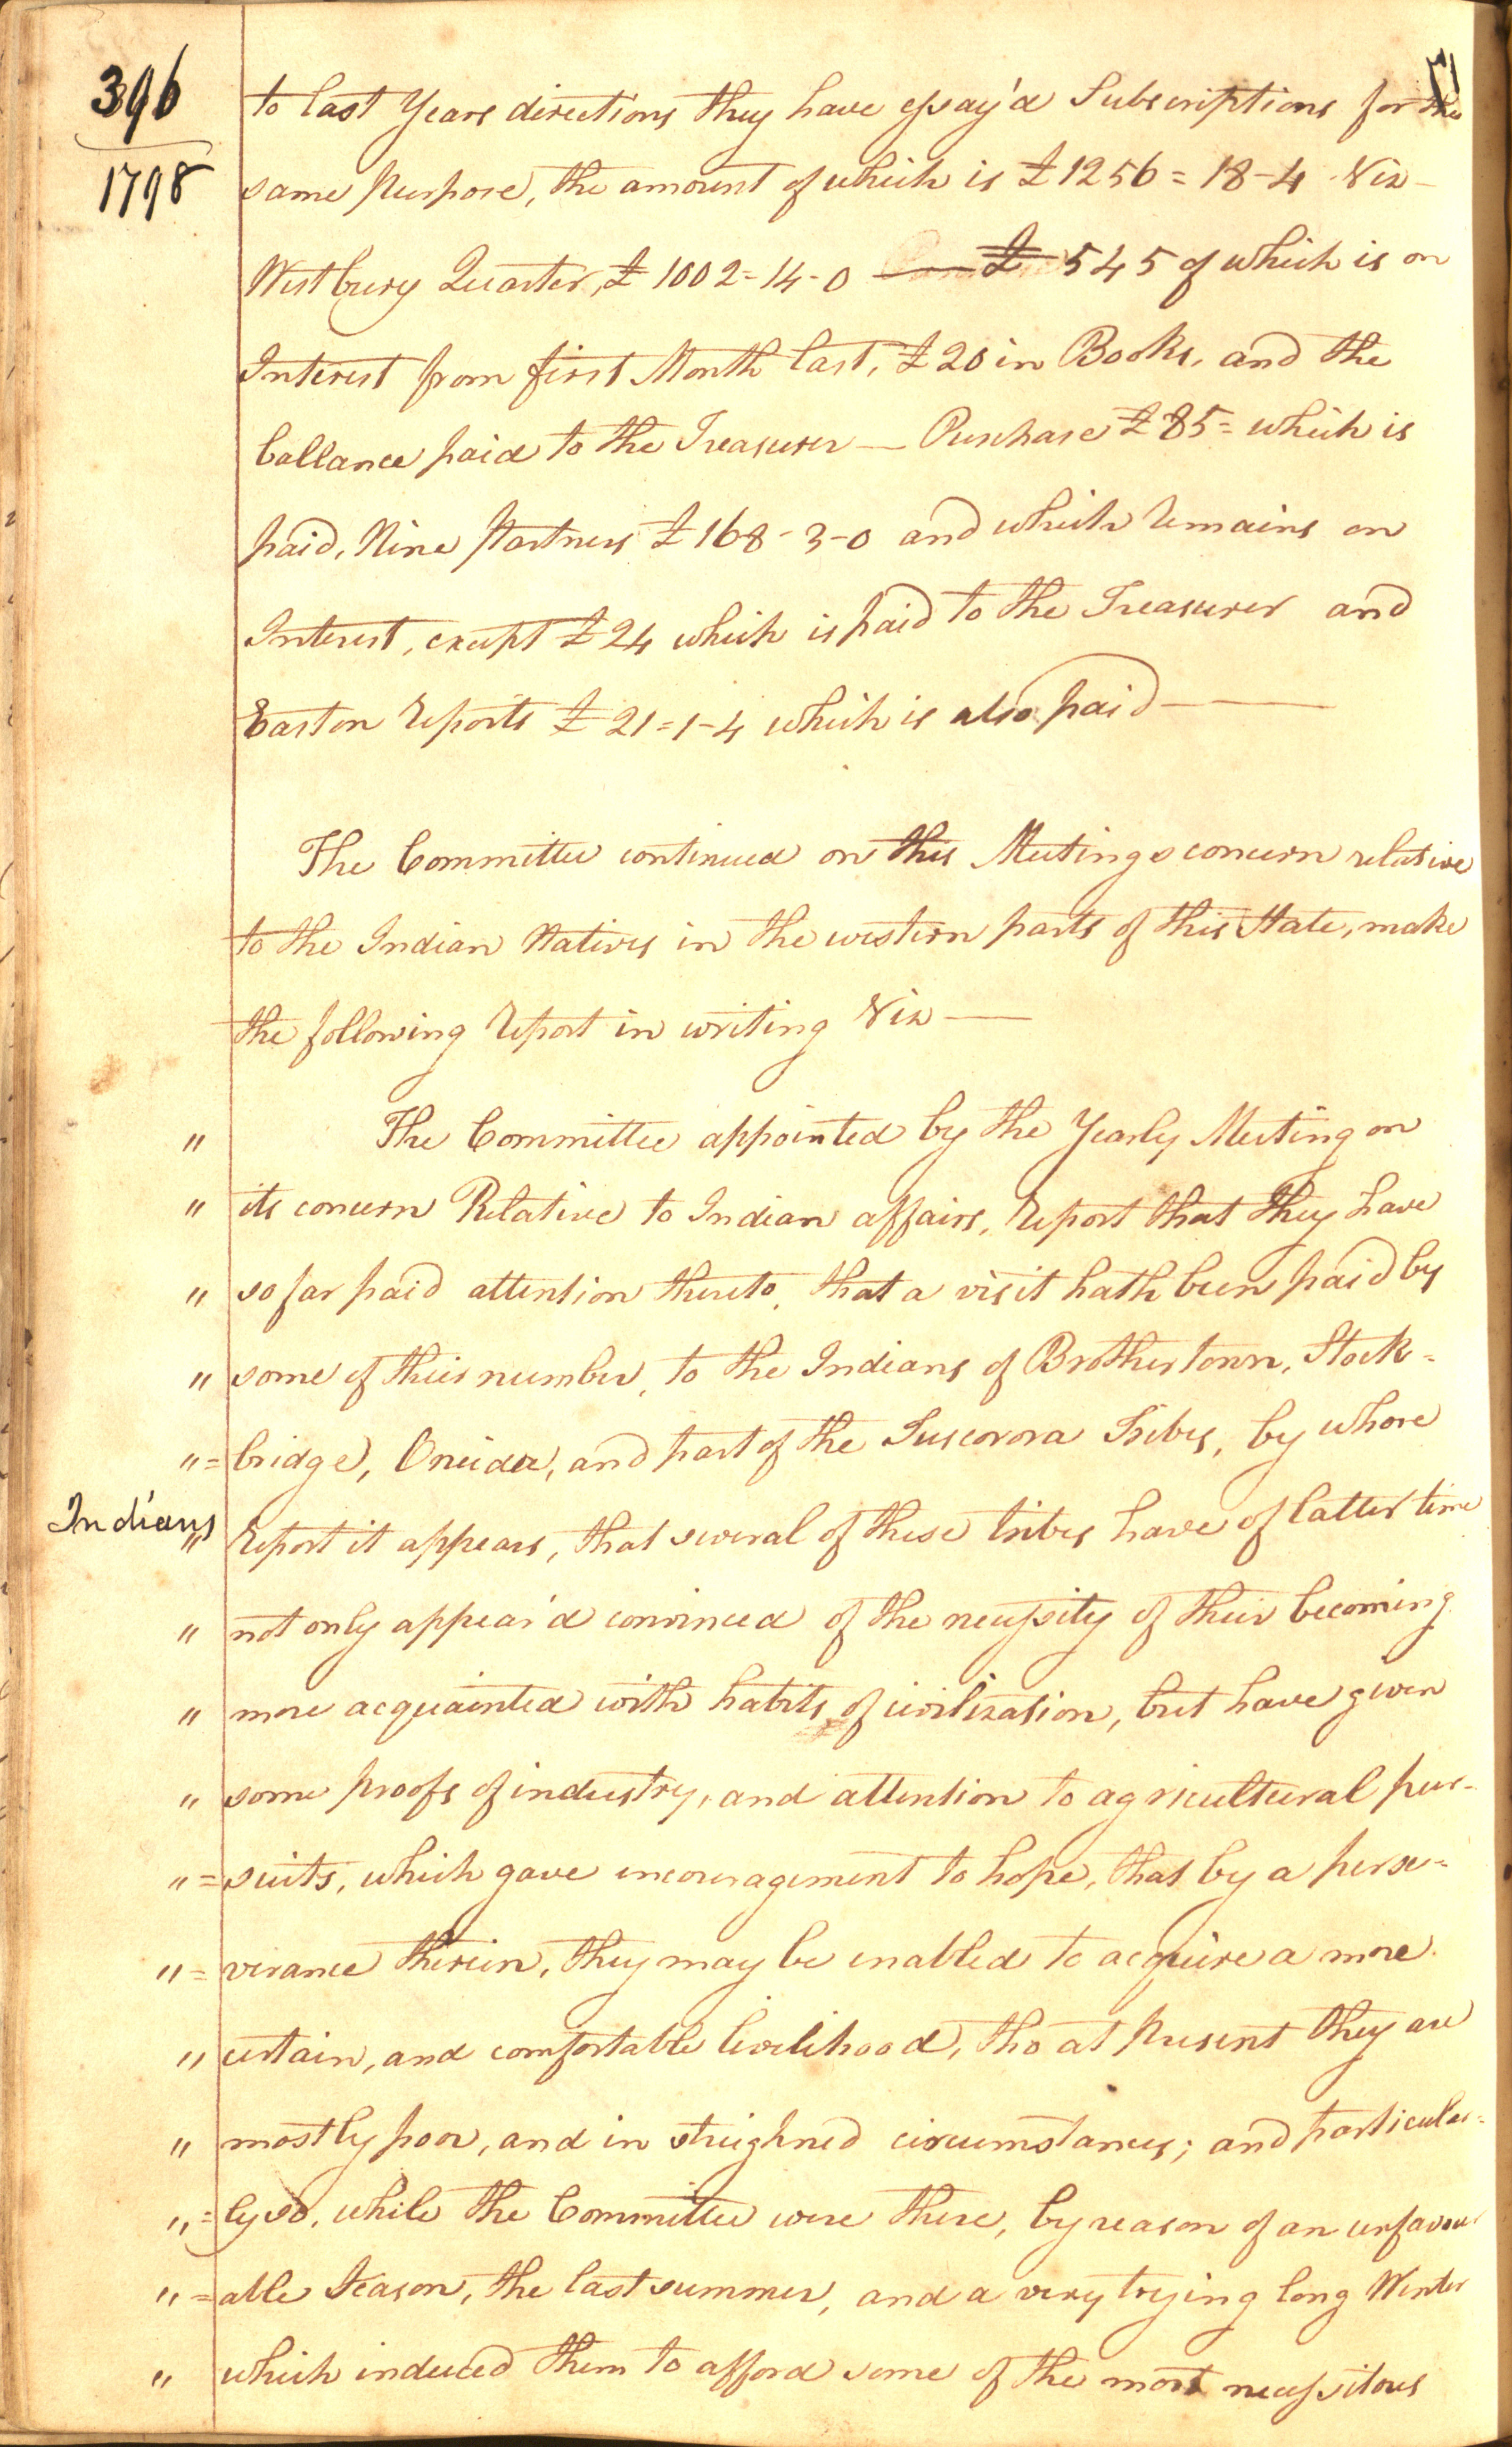 396
1798
to last Years directions they have essay'd Subscriptions for the
same purpose, the amount of which is £1256=18-4 Viz-
Westbury Quarter, £1002=14-0 — £545 of which is on
Interest from first Month last, £20 in Books, and the
ballance paid to the Treasurer — Purchase £85= which is
paid, Nine Partners £168-3-0 and which remains on
Interest, except £24 which is paid to the Treasurer and
Easton reports £21=1-4 which is also paid —
The Committee continued on this Meetings concern relative
to the Indian Natives in the western parts of this State, make
the following report in writing Viz —
" The Committee appointed by the Yearly Meeting on
" its concern Relative to Indian affairs, report that they have
" so far paid attention thereto, that a visit hath been paid by
" some of their number, to the Indians of Brothertown, Stock=
"=bridge, Oneida, and part of the Tuscorora Tribes, by whose
Indians
" report it appears, that several of these tribes have of latter time
" not only appear'd convinced of the necessity of their becoming
" more acquainted with habits of civilization, but have given
" some proofs of industry, and attention to agricultural pur-
"=suits, which gave encouragement to hope, that by a perse=
"=verance therein, they may be enabled to acquire a more
" certain, and comfortable livelihood, tho at present they are
" mostly poor, and in streighned circumstances; and particular=
"=ly so, while the Committee were there, by reason of an unfavour
"=able Season, the last summer, and a very trying long Winter
" which induced them to afford some of the most necessitous